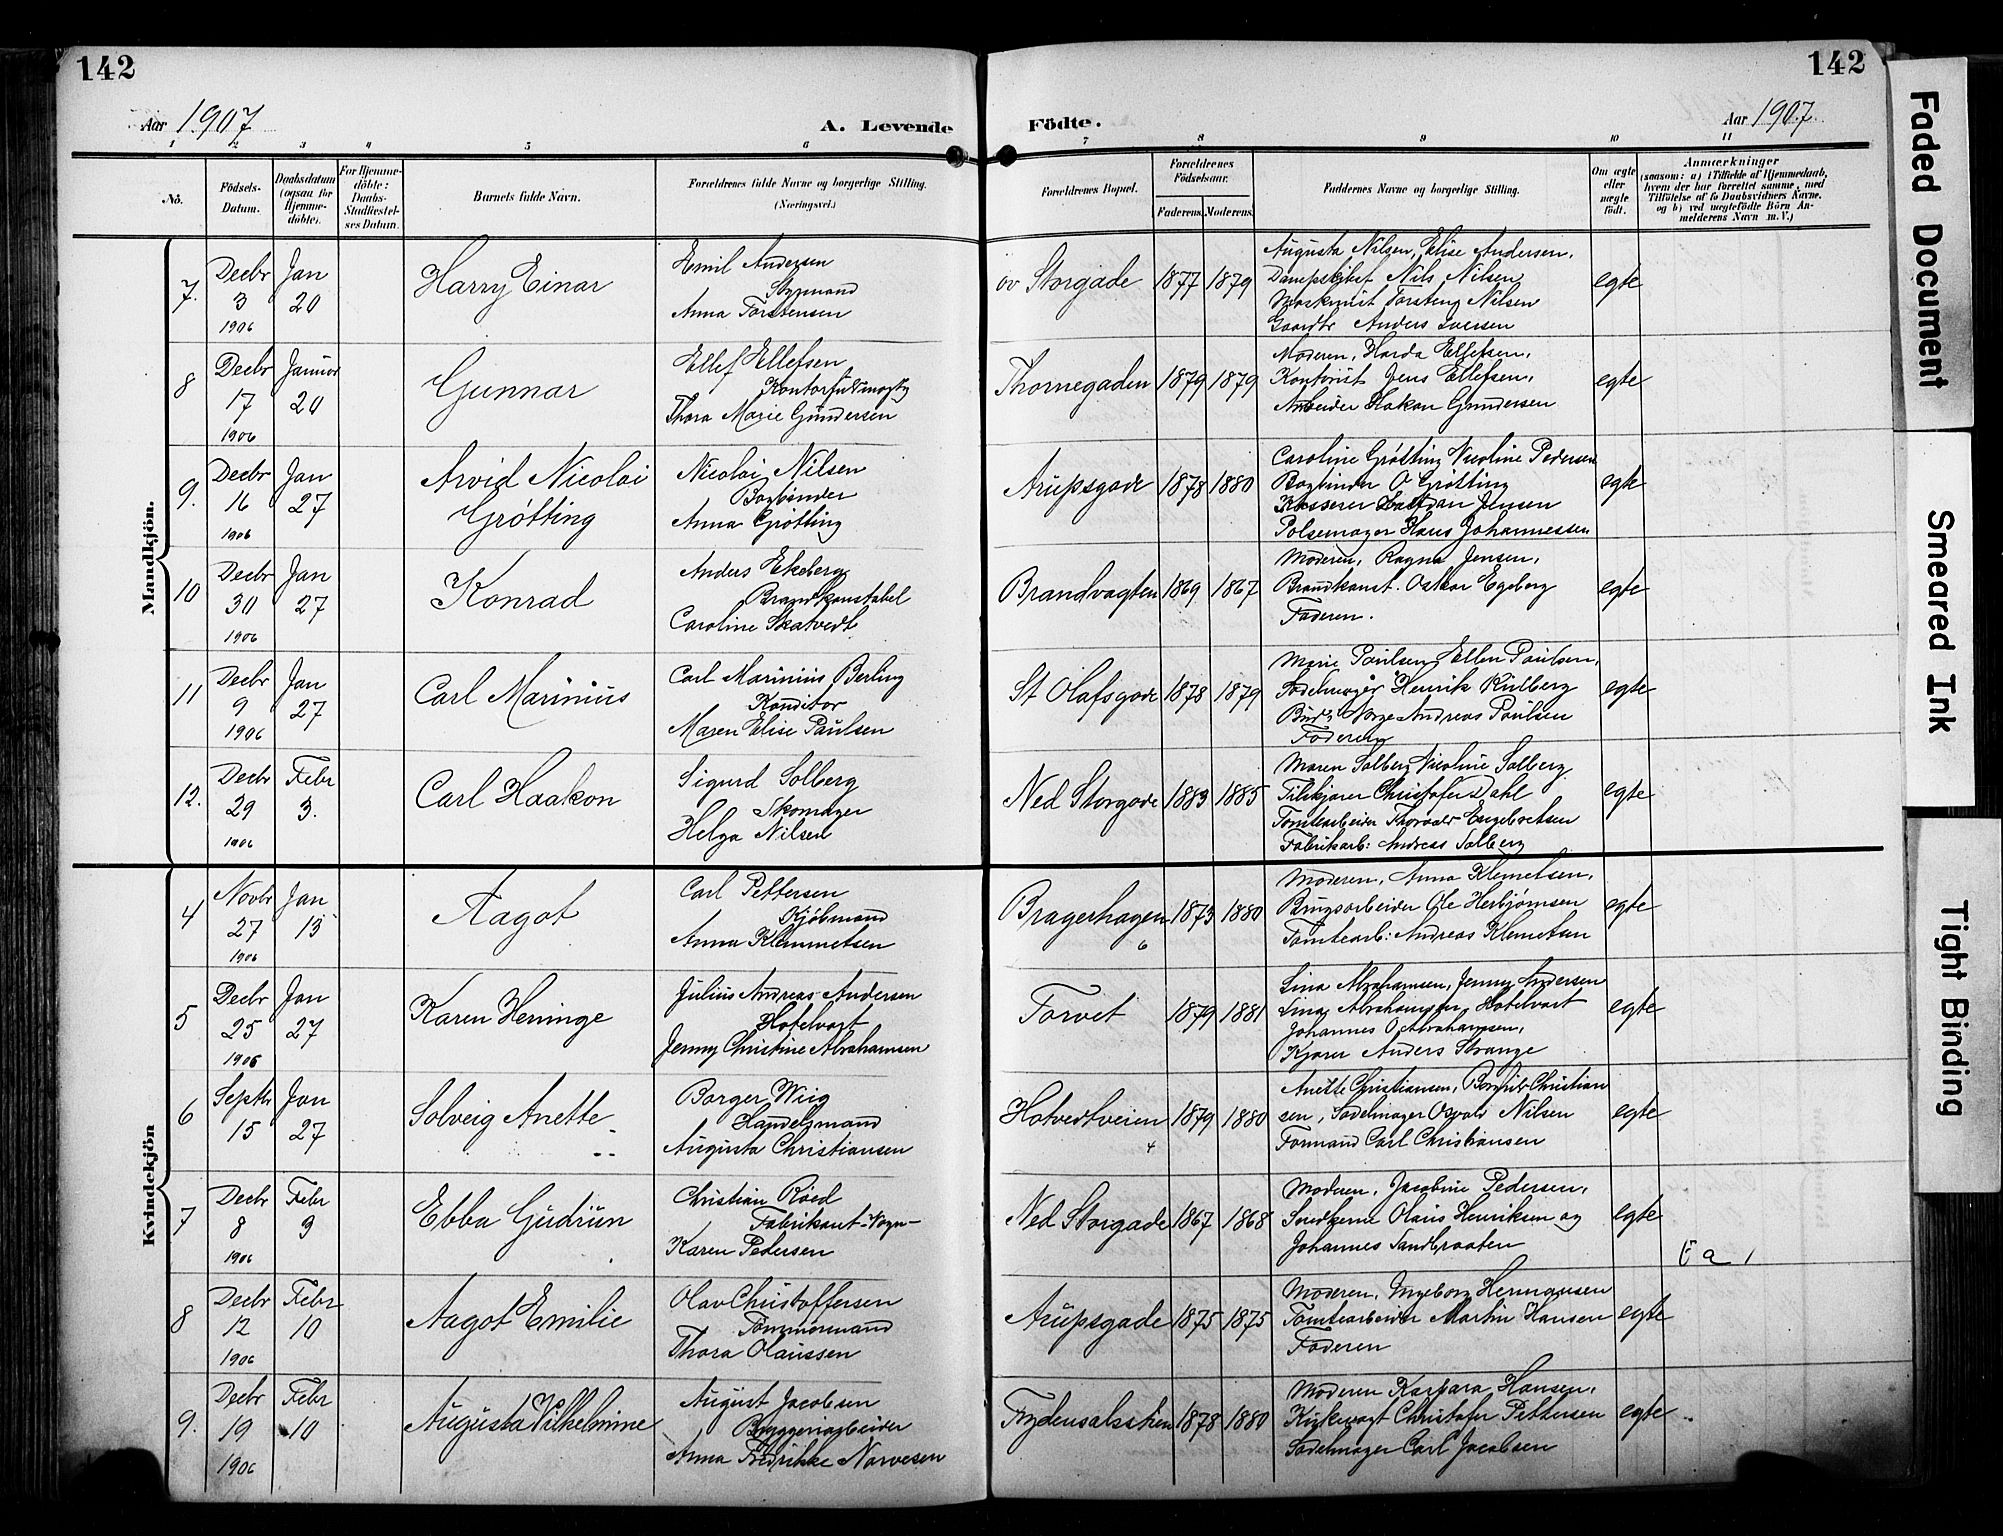 142
Aar 1907
A. Levende
1 2 3 4 5 6
No.
Födsels-Datum.
Daabsdatum (ogsaa for Hjemmedöbte).
For Hjemmedöbte: Daabs-Stadfæstelses Datum.
Barnets fulde Navn.
Forældrenes fulde Navne og borgerlige Stilling.
(Næringsvei.)
Mandkjön.
7.
Decbr 3 1906
Jan 20
Harry Einar
Emil Andersen
Styrmand
Anna Torstensen
8
Decbr 17 1906
Januar 20
Gunnar
Ellef Ellefsen
Kontorfuldmægtig
Thora Marie Gundersen
9.
Decbr 16 1906
Jan 27
Arvid Nicolai
Grötting
Nicolai Nilsen
Bogbinder
Anna Grötting
10
Decbr 30 1906
Jan 27
Konrad
Anders Ekeberg
Brandkonstabel
Caroline Skatvedt
11
Decbr 9 1906
Jan 27
Carl Marinius
Carl Marinius Berling
Konditor
Maren Elise Paulsen
12.
Decbr 29 1906
Febr 3.
Carl Haakon
Sigurd Solberg
Skomager
Helga Nilsen
Kvindekjön
4
Novbr 27 1906
Jan 13
Aagot
Carl Pettersen
Kjöbmand
Anna Klemmetsen
5
Decbr 25 1906
Jan 27
Karen Heninge
Julius Andreas Andersen
Hotelvært
Jenny Christine Abrahamsen
6
Septbr 15
Jan 27
Solveig Anette
Borger Wiig
Handelsmand
Augusta Christiansen
7
Decbr 8 1906
Febr 9
Ebba Gudrun
Christian Röed
Fabrikant
Karen Pedersen
8
Decbr 12 1906
Febr 10
Aagot Emilie
Olav Christoffersen
Tömmermand
Thora Olaussen
9.
Decbr 19 1906
Febr 10
Augusta Vilhelmine
August Jacobsen
Bryggeriarbeider
Anna Fredrikke Narvesen
142
Födte.
Aar 1907.
7 8 9 10 11
Forældrenes Bopæl.
Forældrenes Födselsaar.
Faderens. Moderens.
Faddernes Navne og borgerlige Stilling.
Om ægte eller uægte födt.
Anmærkninger
(saasom: a) i Tilfælde af Hjemmedaab,
hvem der har forrettet samme, med
Tilföielse af to Daabsvidners Navne,
og b) ved uægtefödte Börn An-
melderens Navn m. V.)
öv Storgade 1877 1879
Augusta Nilsen, Elise Andersen,
Nils Nilsen
Maskinist Torsten Nilsen
Gaardbr Anders Iversen
egte
Thornegaden 1879 1879
Moderen, Harda Ellefsen,
Kontorist Jens Ellefsen,
Arbeider Hakon Gundersen
egte
Arupsgade 1878 1880
Caroline Grötting Nicoline Pedersen
Bogbinder O Grötting
Kasserer Halfdan Jensen
Pölsemager Hans Johannessen
egte
Brandvagten 1869 1867
Moderen, Ragna Jensen,
Brandkonst. Oskar Egeberg
Faderen.
egte
St Olafsgade 1878 1879
Marie Paulsen, Ellen Paulsen,
Sadelmager Henrik Kulberg
Andreas Paulsen
Faderen
egte
Ned Storgade 1883 1885
Maren Solberg Nicoline Solberg
Filskjærer Christofer Dahl
Tomtearbeider Thorvald Engebretsen
Fabrikarb: Andreas Solberg
egte
Bragerhagen 6 1873 1880
Moderen, Anna Klemetsen,
Brugsarbeider Ole Herbjörnsen
Tomtearb: Andreas Klemetsen
egte
Torvet 1879 1881
Lina Abrahamsen, Jenny Andersen
Lina Abrahamsen, Hotelvært
Johannes O Abrahamsen,
Kjörer Anders Strange
egte
Hotvedtveien 4 1879 1880
Anette Christiansen, Borghild Christian
sen, Sadelmager Osvald Nilsen
Formand Carl Christiansen
egte
Ned Storgade 1867 1868
Moderen, Jacobine Pedersen,
Snedkerne Olaus Henriksen og
Johannes Sandbraaten
egte
Arupsgade 1875 1875
Moderen, Ingeborg Hermansen
Tomtearbeider Martin Hansen
Faderen
egte
Frydensalsstien 1878 1880
Moderen Karpara Hansen,
Kirkevagt Christofer Pettersen
Sadelmager Carl Jacobsen
egte
Faded Document
Smeared Ink
Tight Binding